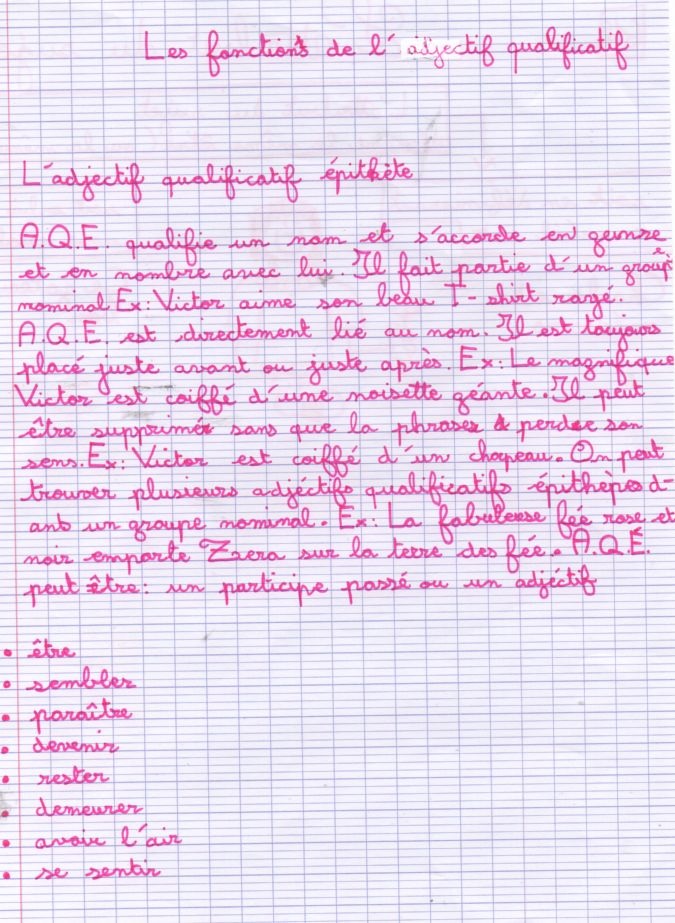 Les fonctions de l'adjectif qualificatif
L'adjectif qualificatif épithète
A.Q.E. qualifie un nom et s'accorde en geunre
et en nombre avec lui. Il fait partie d'un groupe
nominal Ex: Victor aime son beau T-shirt rangé.
A.Q.E. est directement lié au nom. Il est toujours
placé juste avant ou juste après. Ex: Le magnifique
Victor est coiffé d'une noisette géante. Il peut
être supprimé sans que la phrase perdre son
sens. Ex: Victor est coiffé d'un chapeau. On peut
trouver plusieurs adjéctifs qualificatifs épithèpes d-
ans un groupe nominal. Ex: La fabuleuse fée rose et
noir emporte Zaera sur la terre des fée. A.Q.É.
peut être: un participe passé ou un adjéctif
• être
• sembler
• paraître
• devenir
• rester
• demeurer
• avoir l'air
• se sentir